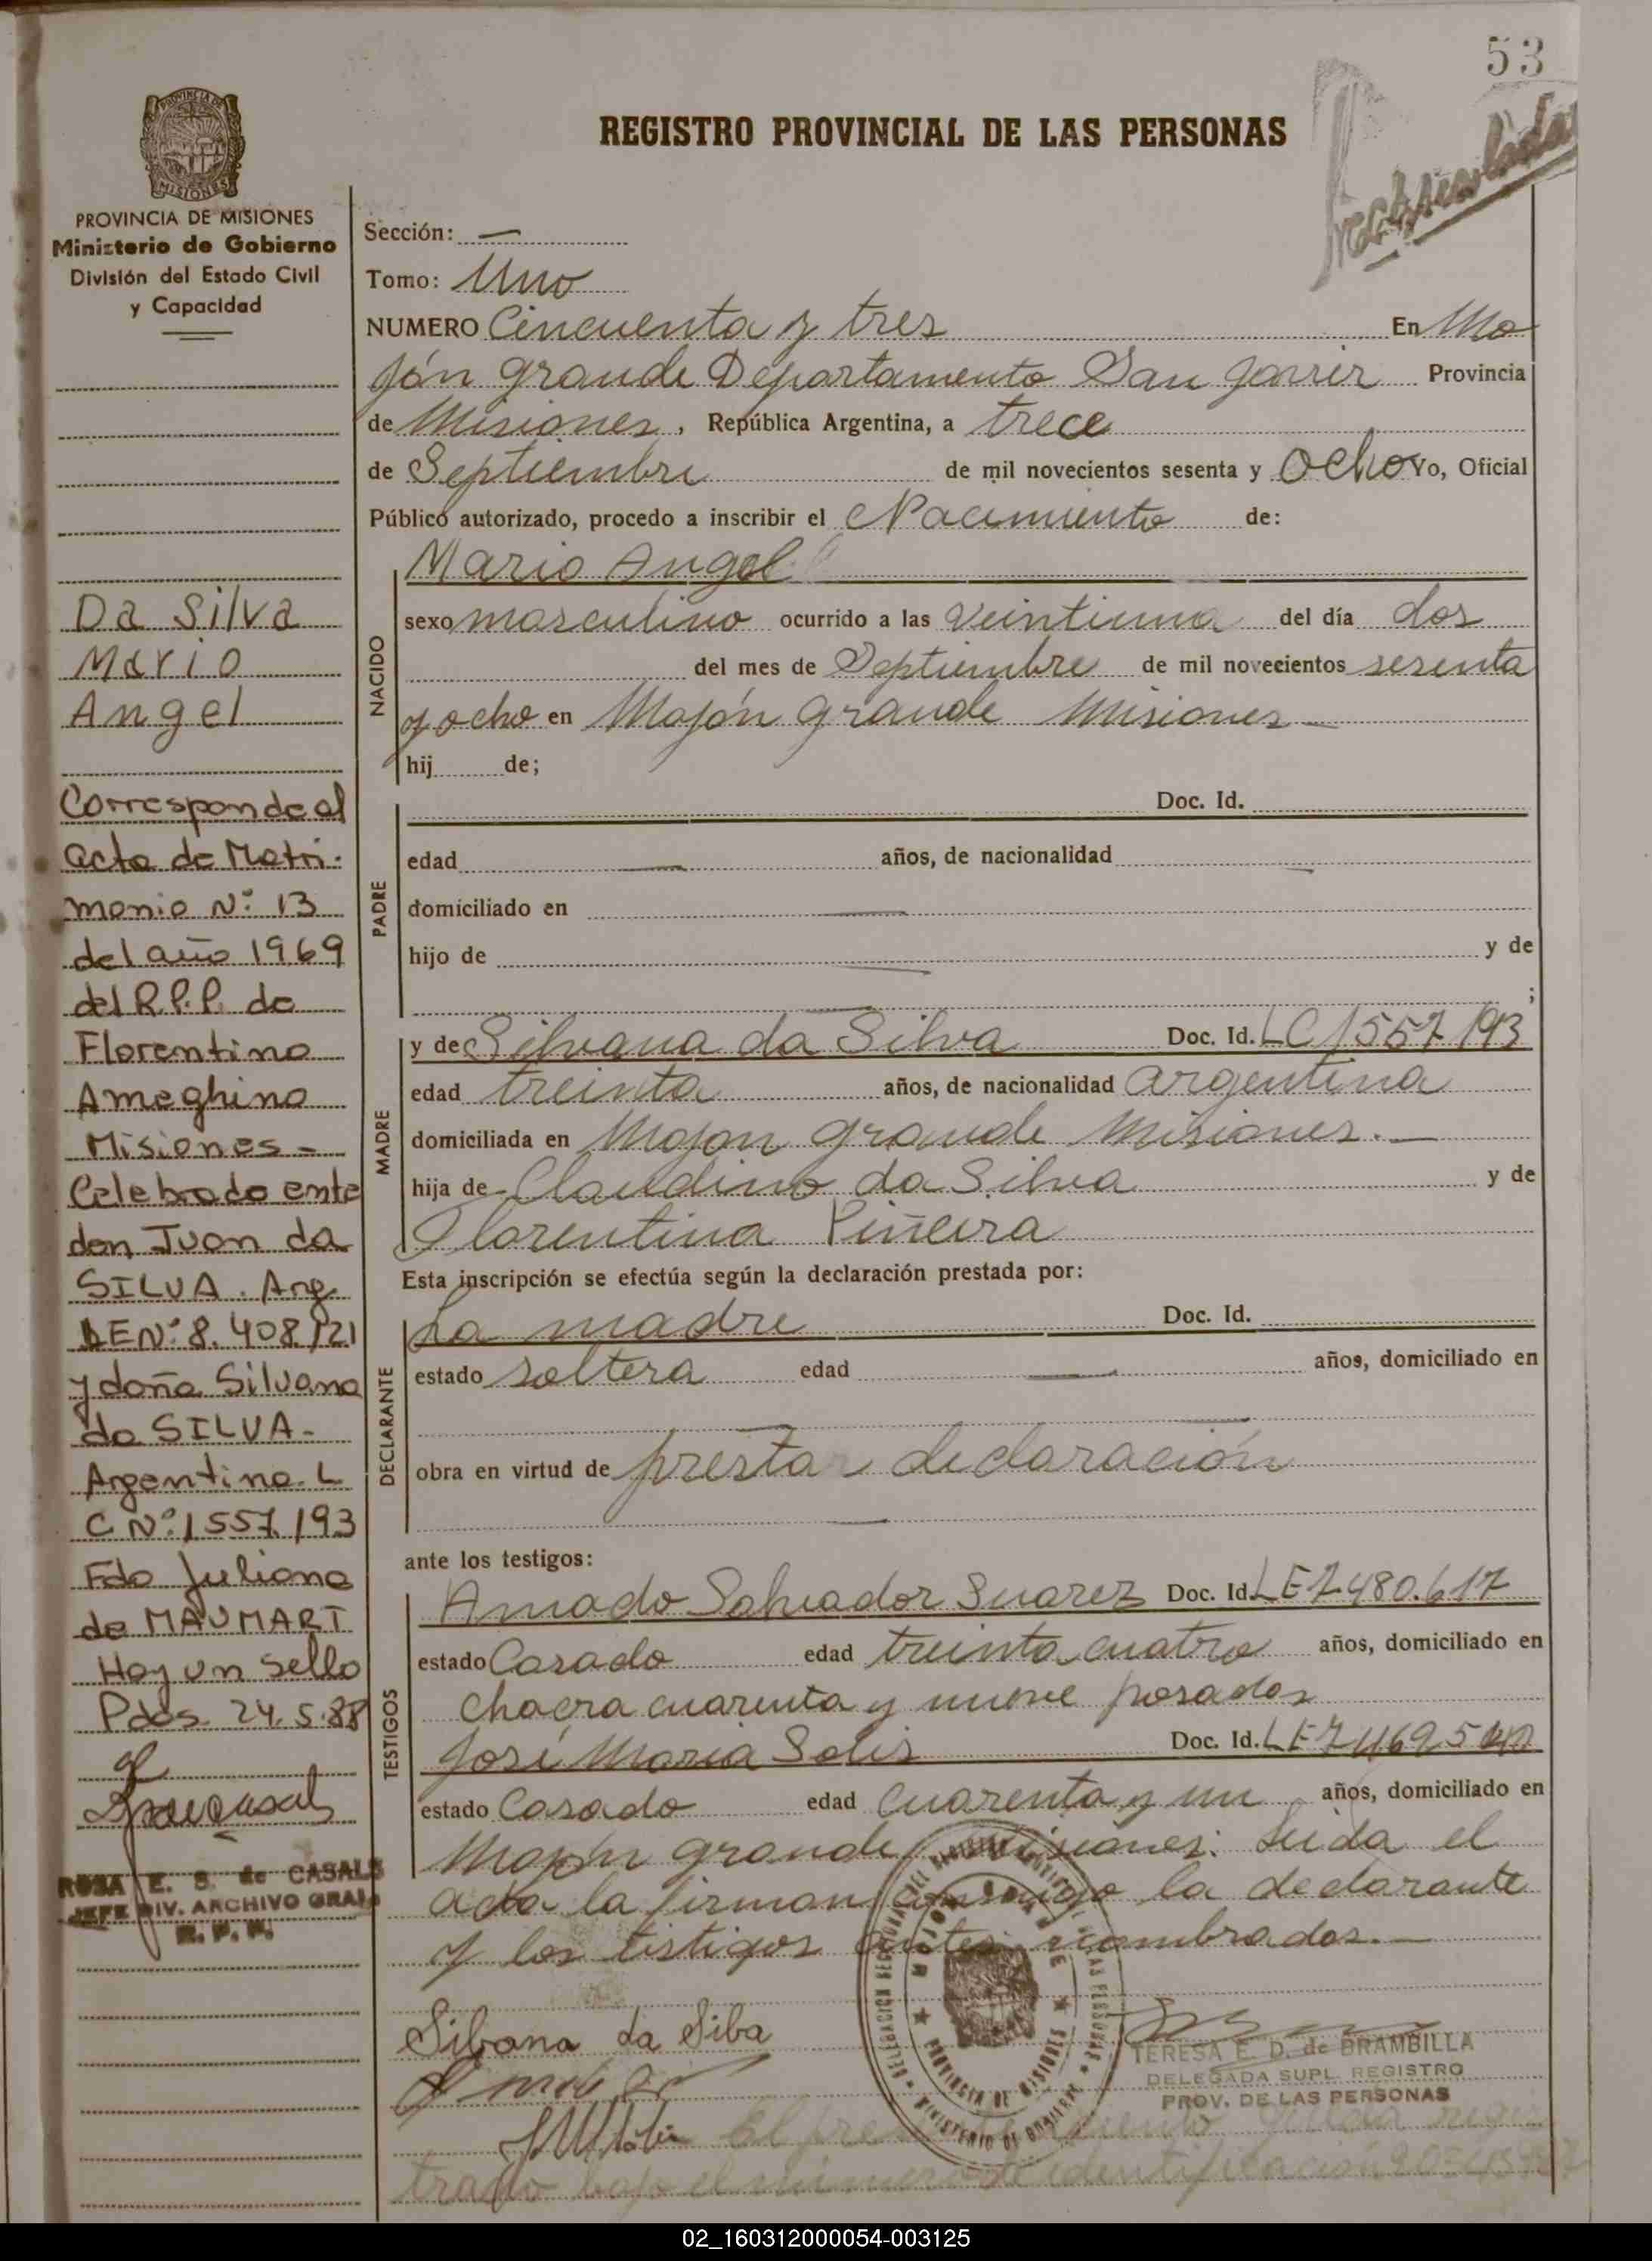 53
REGISTRO PROVINCIAL DE LAS PERSONAS
PROVINCIA DE MISIONES
Ministerio de Gobierno
División del Estado Civil
y Capacidad
Da Silva
Mario
Angel
Corresponde al
acta de Matri-
monio Nº 13
del año 1969
del R.P.P. de
Florentino
Ameghino
Misiones -
Celebrado ente
don Juan da
SILVA. Arg.
Nº 8.408.121
y doña Silvana
da SILVA -
Argentina. L
C Nº 1557.193
Fdo Juliana
de MAUMART
Hay un Sello
Pdas. 24.5.88
ROSA E. S. de CASALS
JEFE DIV. ARCHIVO GRAL
R. P. P.
Sección: —
Tomo: Uno
NUMERO Cincuenta y tres En Mo
jón grande Departamento San Javier Provincia
de Misiones, República Argentina, a trece
de Septiembre de mil novecientos sesenta y Ocho Yo, Oficial
Público autorizado, procedo a inscribir el Nacimiento de:
Mario Angel
NACIDO
sexo masculino ocurrido a las veintiuna del día dos
del mes de Septiembre de mil novecientos sesenta
y ocho en Mojón grande Misiones —
hij de;
PADRE
Doc. Id.
edad — años, de nacionalidad —
domiciliado en —
hijo de — y de
— ;
MADRE
y de Silvana da Silva Doc. Id. LC 1557193
edad treinta años, de nacionalidad argentina
domiciliada en Mojon grande Misiones. —
hija de Claudino da Silva y de
Florentina Piñeira
Esta inscripción se efectúa según la declaración prestada por:
DECLARANTE
La madre Doc. Id.
estado soltera edad — años, domiciliado en
—
obra en virtud de prestar declaración
—
ante los testigos:
TESTIGOS
Amado Salvador Suarez Doc. Id. LE 7480.617
estado Casado edad treinta cuatro años, domiciliado en
chacra cuarenta y nueve posadas
José Maria Solis Doc. Id. LE 7469540
estado Casado edad Cuarenta y un años, domiciliado en
Mojón grande misiones. Leida el
acta la firman conmigo la declarante
y los testigos antes nombrados. —
Sibana da Siba
TERESA E. D. de BRAMBILLA
DELEGADA SUPL. REGISTRO
PROV. DE LAS PERSONAS
El
trado bajo el número de identificación
02_160312000054-003125